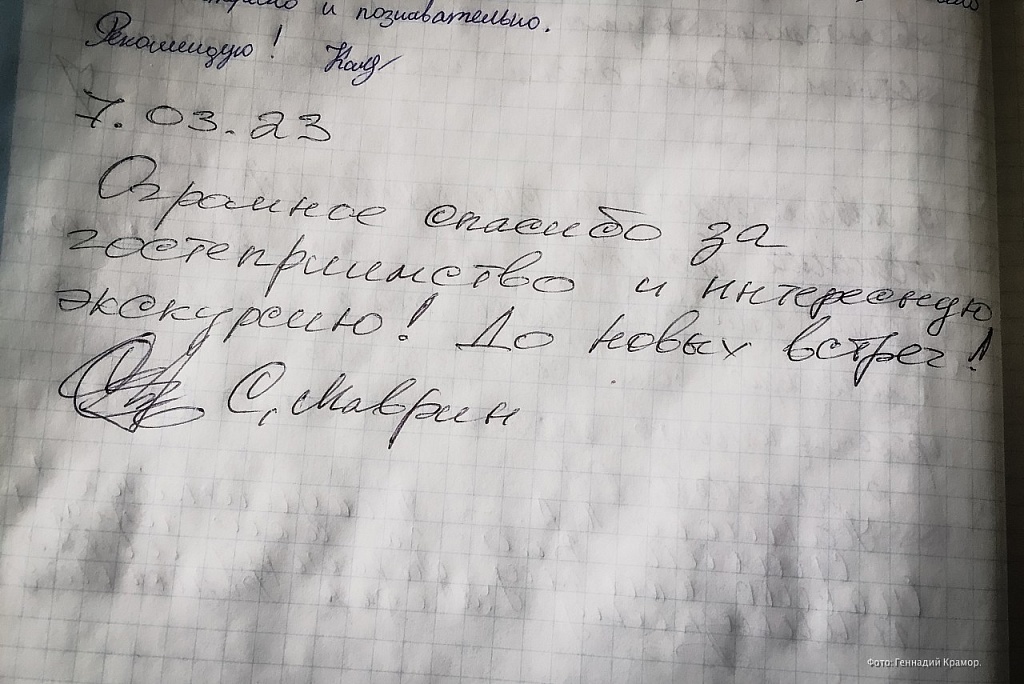 и познавательно.
Рекомендую!
7.03.23
Огромное спасибо за
гостеприимство и интересную
экскурсию! До новых встреч!
С. Маврин
Фото: Геннадий Крамор.